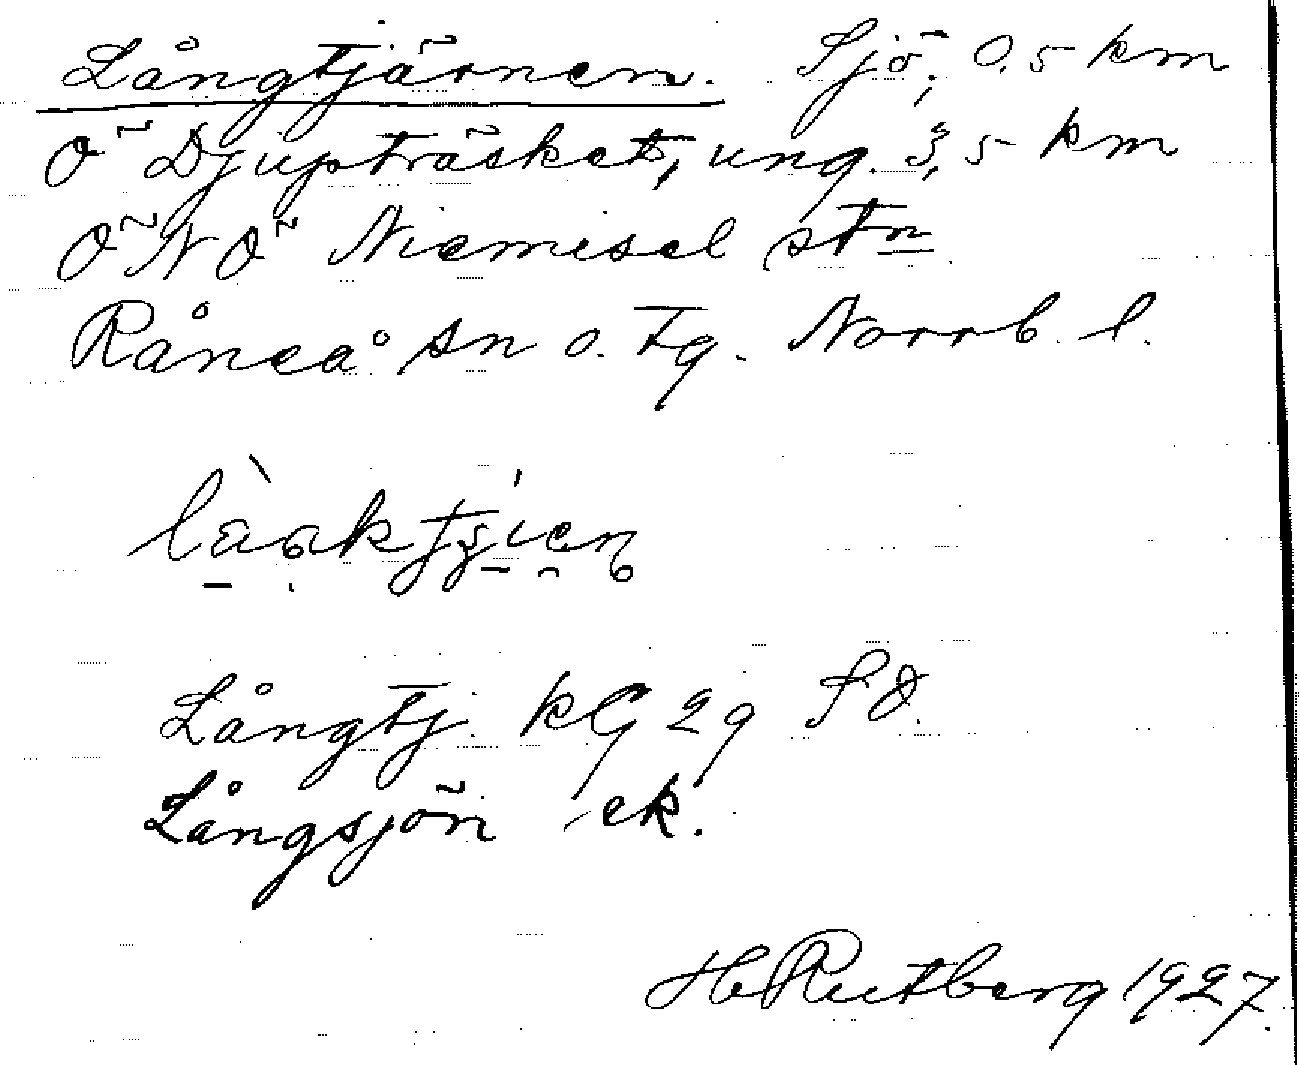 Långtjärnen. Sjö, 0,5 km
Ö Djupträsket, ung. 3,5 km
ÖNÖ Niemisel stn
Råneå sn o. tg. Norrb. l.
Långtj. kG 29 SO.
Långsjön ek.
H Rutberg 1927.